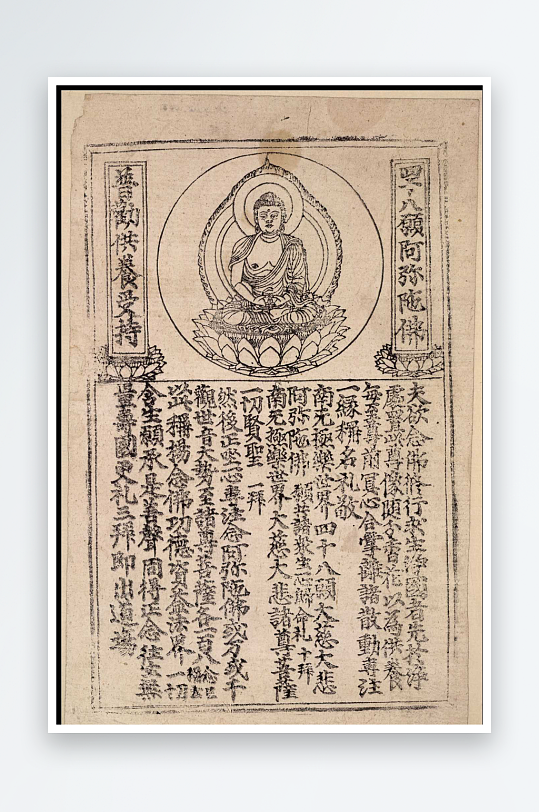 四十八願阿弥陀佛
普勸供養受持
夫欲念佛修行求生淨國者先於淨
處置此尊像随分香花以為供養
每至尊前冥心合掌離諸散動專注
一緣稱名礼敬
南无極樂世界四十八願大慈大悲
阿弥陀佛 願共諸衆生一心歸命礼十拜
南无極樂世界大慈大悲諸尊菩薩
一切賢聖 一拜
然後正坐一心專注念阿弥陀佛或万或千
觀世音大勢至諸尊菩薩各一百八
以此稱揚念佛功德資益法界一切
含生願承是善聲同得正念往生無
量壽國更礼三拜即出道場